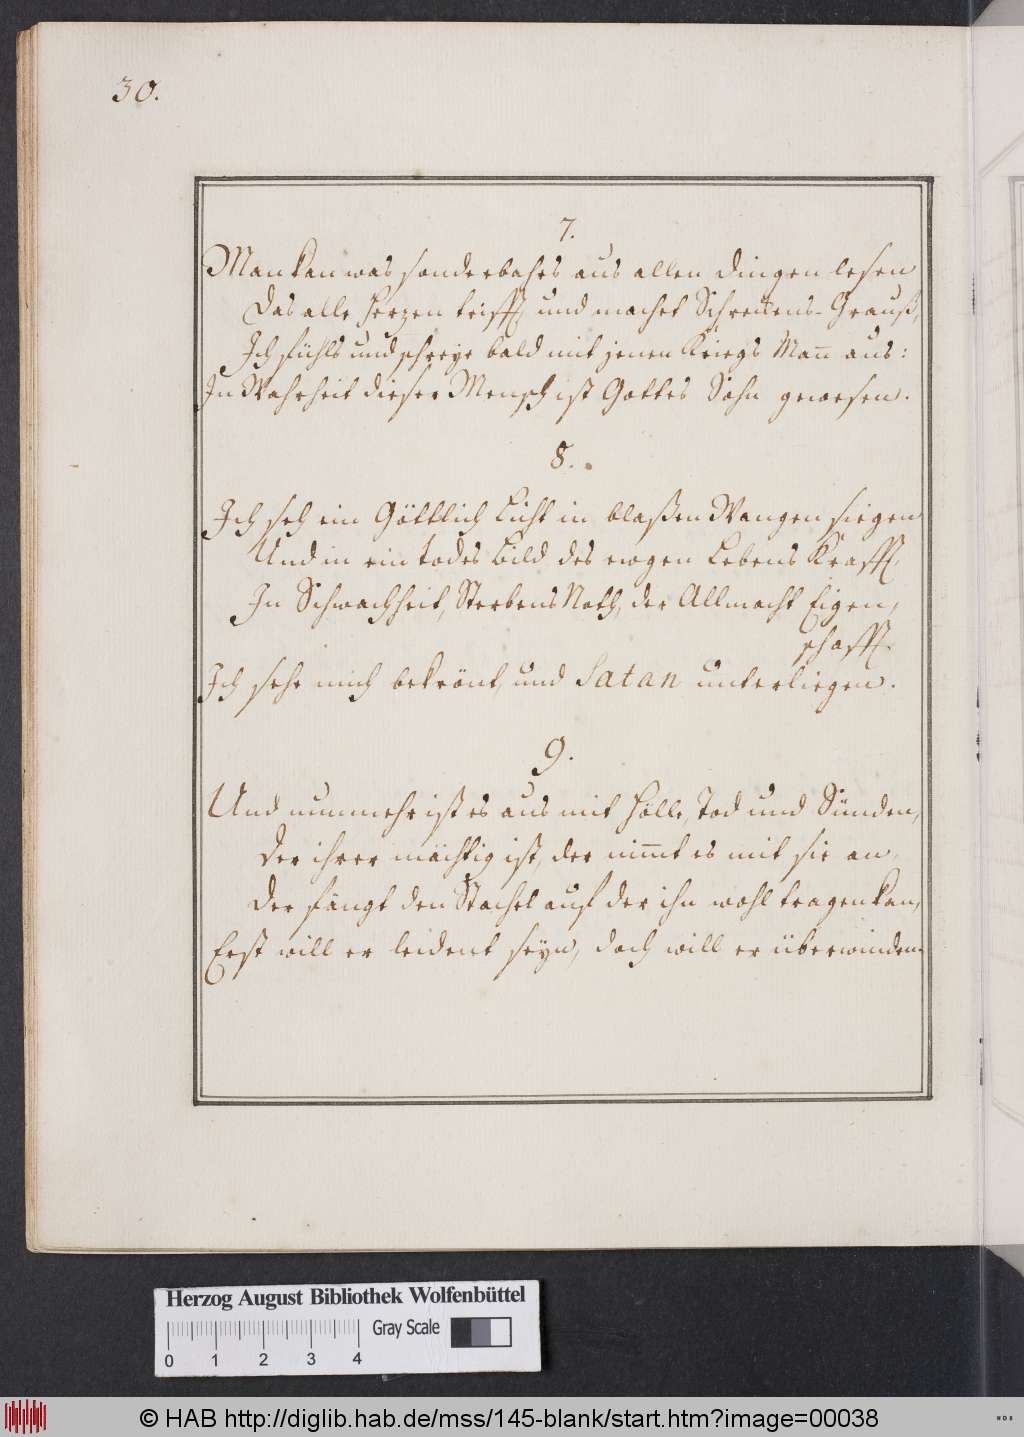 30.
7.
Man kan was sonderbahrs aus allen dingen lesen
Das alle Hertzen trifft, und machet Schrekens-Grauß,
Ich fühls und schreye bald mit jenen Kriegs Mañ aus:
In Wahrheit dieser Mensch ist Gottes Sohn gewesen.
8.
Ich seh ein Göttlich Licht in blaßen Wangen siegen
Und in ein todes Bild des ewgen Lebens Krafft,
In Schwachheit, Sterbens Noth, der Allmacht Eigen,
schafft.
Ich sehe mich bekrönt, und Satan unterliegen.
9.
Und nunmehr ist es aus mit Hölle, Tod und Sünden,
Der ihrer mächtig ist, der nim̄t es mit sie an,
Der fängt den Stachel auf der ihn wohl tragen kan,
Erst will er leident seyn, doch will er überwinden.
Herzog August Bibliothek Wolfenbüttel
Gray Scale
0 1 2 3 4
© HAB http://diglib.hab.de/mss/145-blank/start.htm?image=00038